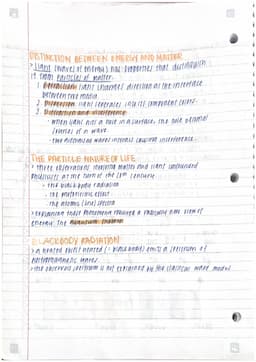 DISTINCTION BETWEEN ENERGY AND MATTER
> Light (waves of energy) has properties that distinguish
it from particles of matter.
1. Refraction: light changes direction at the interface
between two media
2. Dispersion: light separates into its component colors.
3. Diffraction and interference
- when light hits a hole in a surface, the hole
of a wave.
- two different waves interact causing interference.
THE PARTICLE NATURE OF LIFE
> three observations involving matter and light confounded
physicists at the turn of the 20th century
- the blackbody radiation
- the photoelectric effect
- the atomic (line) spectra
> explaining these phenomena required a radically new view of
energy: the quantum
BLACKBODY RADIATION
> A heated object (= blackbody) emits a spectrum of
electromagnetic waves.
> the observed spectrum is not explained by the classical wave model